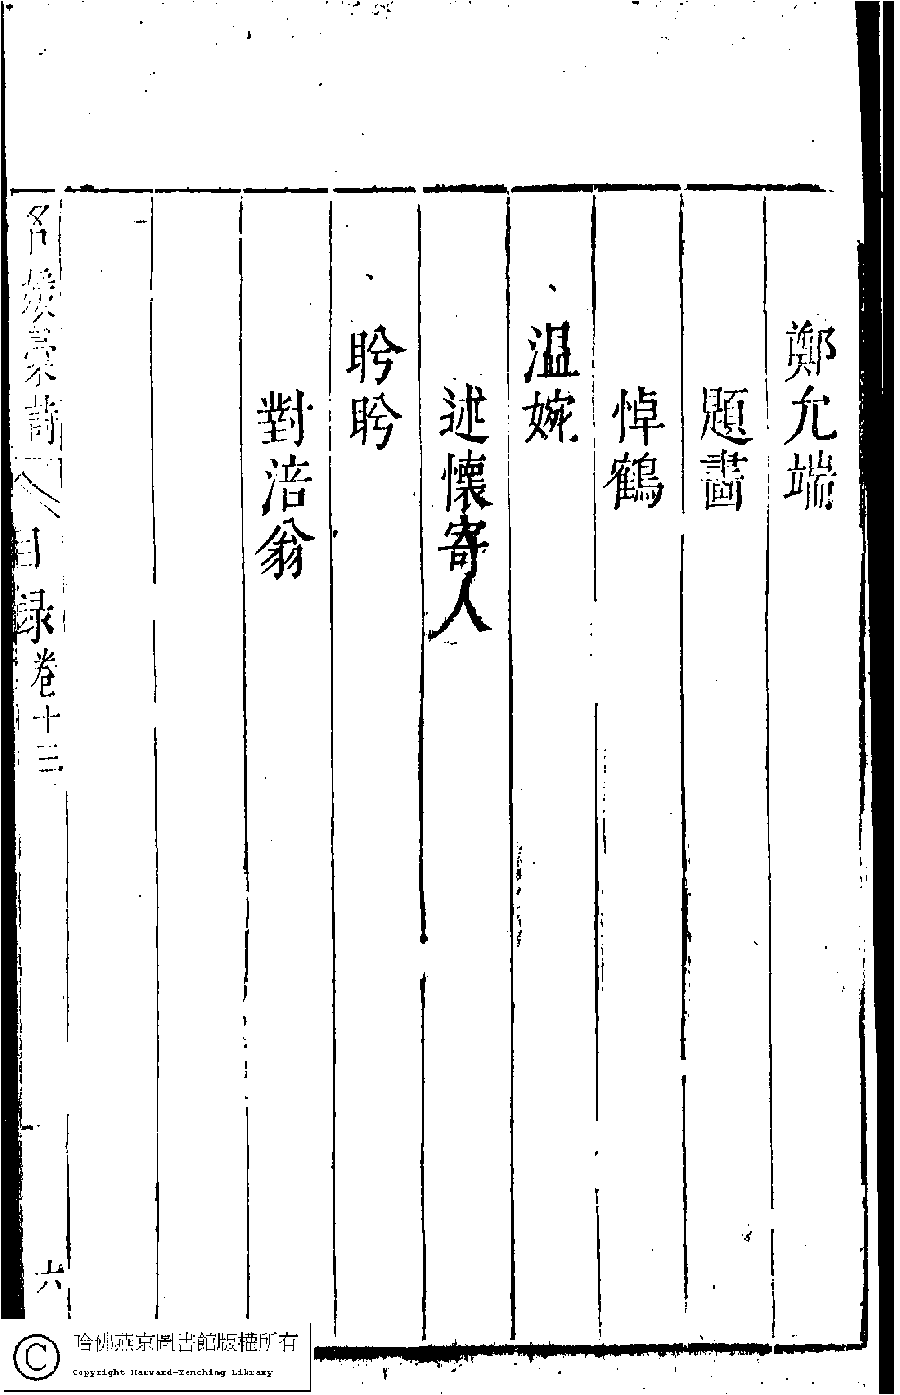 鄭允端
題畵
悼鶴
溫婉
述懷寄人
盻盻
對涪翁
名媛彙詩
目錄
卷十三
六
哈佛燕京圖書館版權所有
Copyright Harvard-Yenching Library